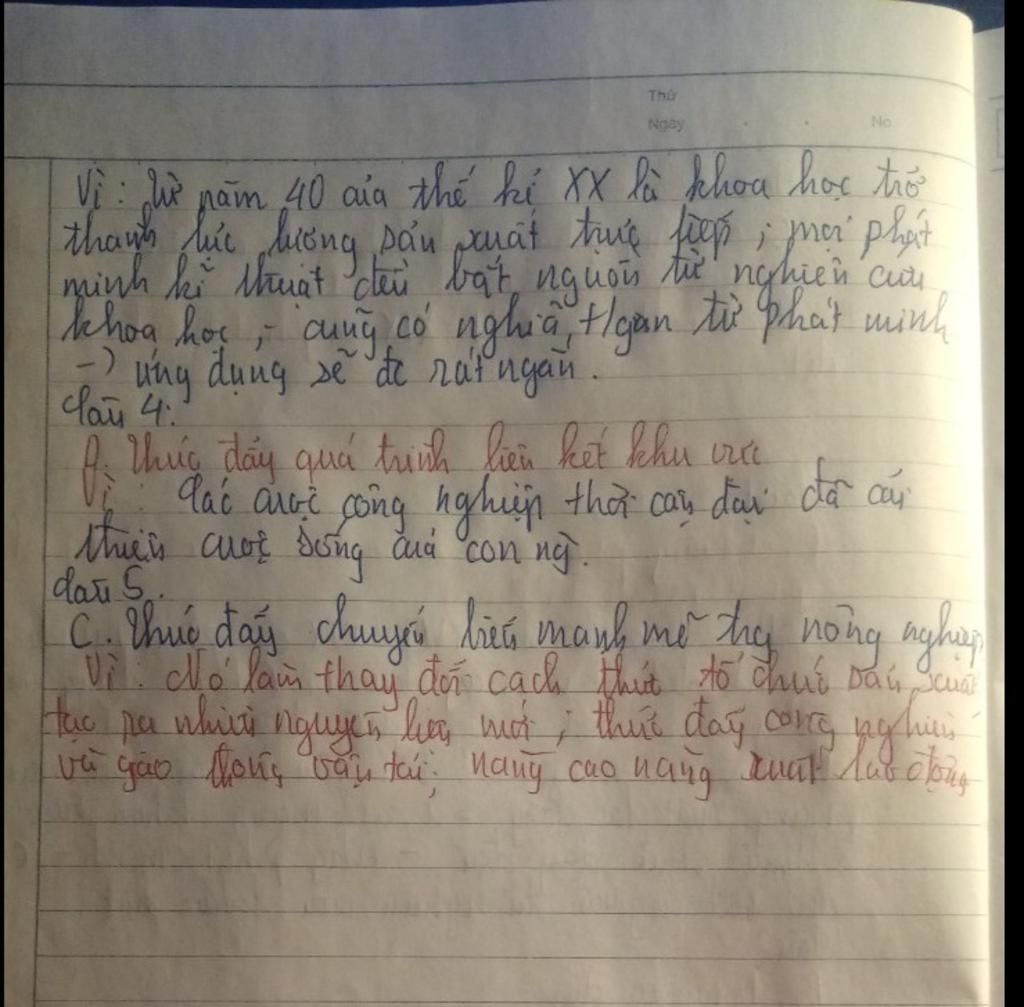 Thứ
Ngày
No
Vì: từ năm 40 của thế kỉ XX là khoa học trở
thành lực lượng sản xuất trực tiếp; mọi phát
minh kĩ thuật đều bắt nguồn từ nghiên cứu
khoa học, - cũng có nghĩa, t/gan từ phát minh
-) ứng dụng sẽ đc rút ngắn.
Câu 4:
A. Thúc đẩy quá trình liên kết khu vực
Vì: Các cuộc công nghiệp thời cận đại đã cải
thiện cuộc sống của con ng.
Câu 5.
C. Thúc đẩy chuyển biến mạnh mẽ trg nông nghiệp
Vì: Nó làm thay đổi cách thức tổ chức sản xuất
tạc ra nhiều nguyên liệu mới; thúc đẩy công nghiệp
và giao thông vận tải; nâng cao năng xuất lao động